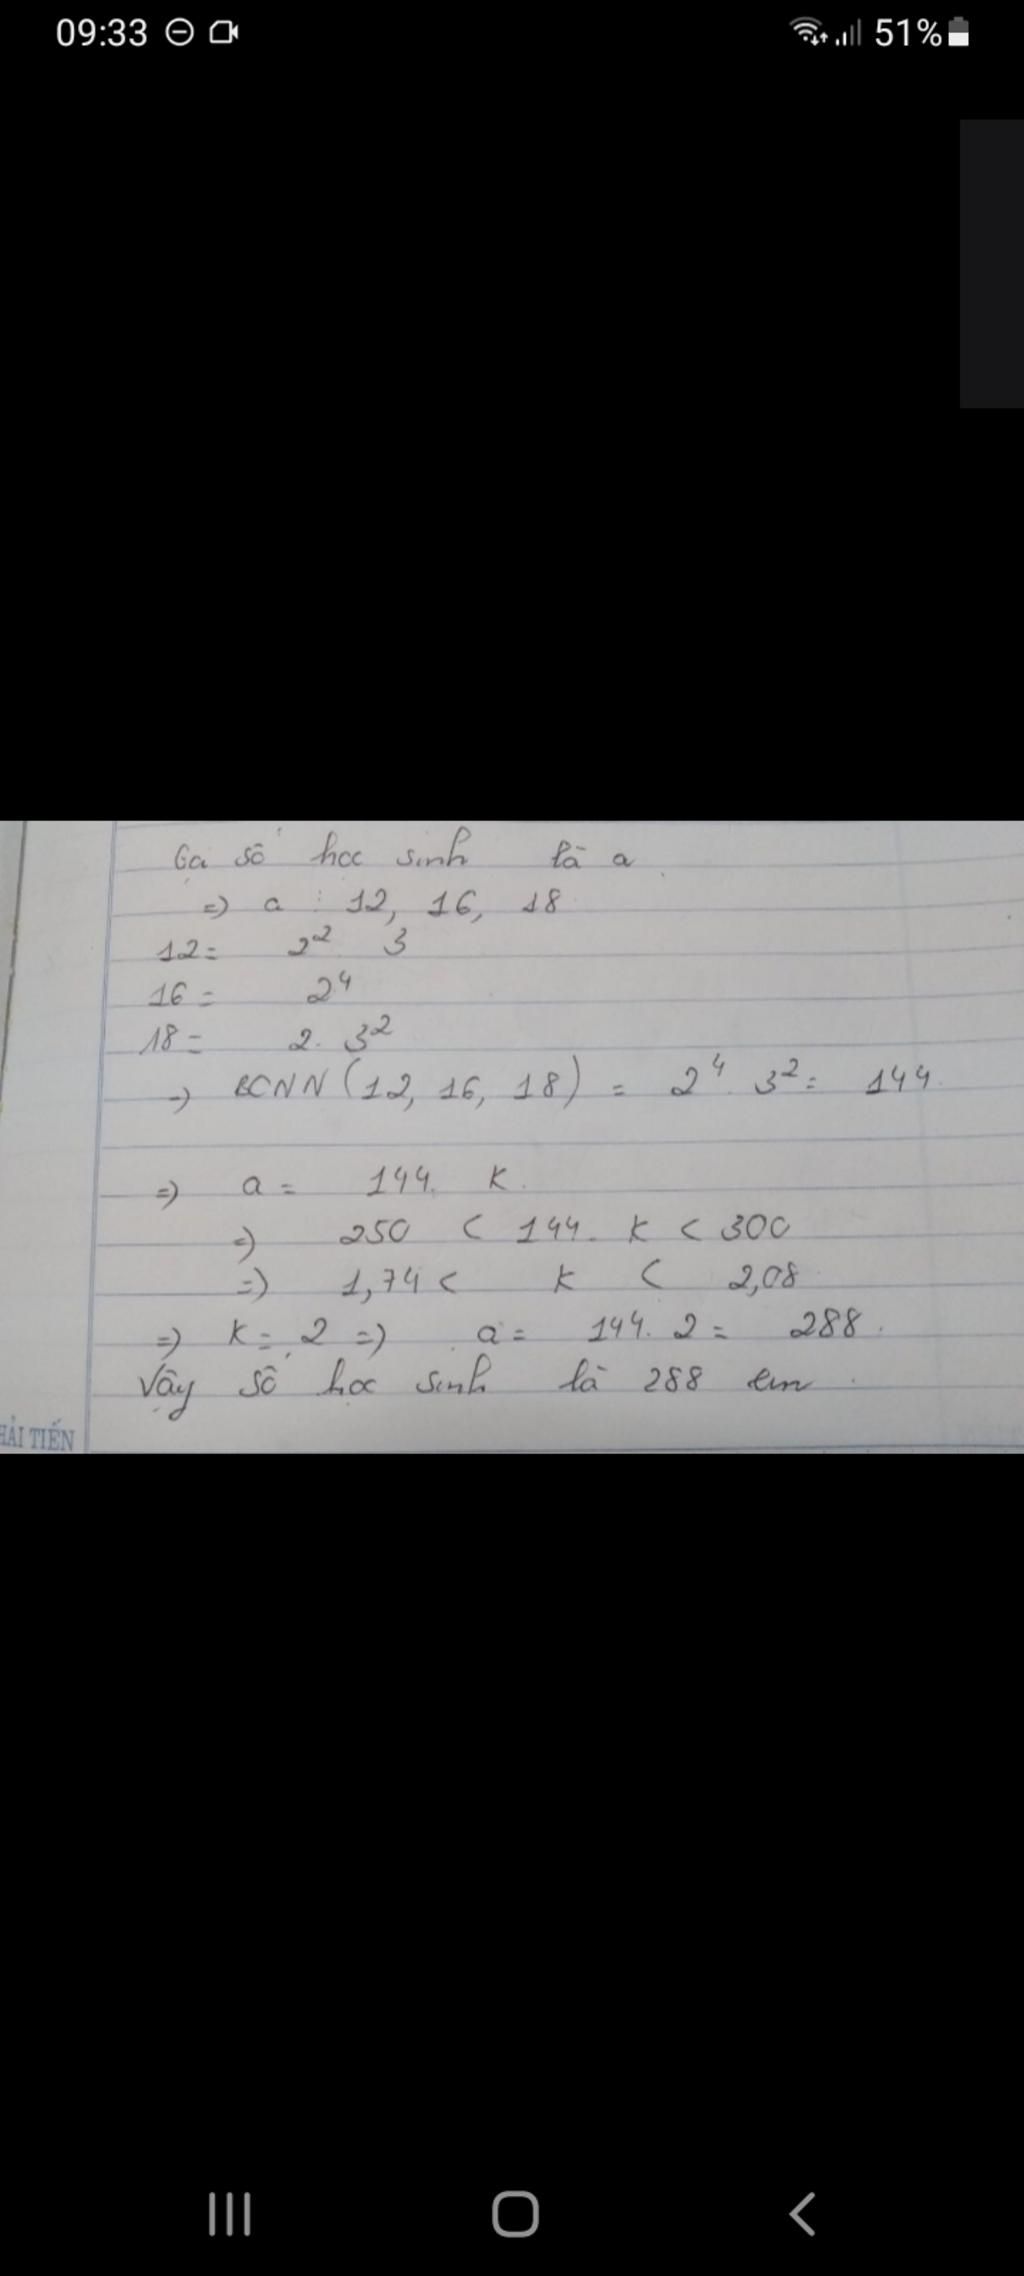 09:33 51%
Gọi số học sinh là a
=> a ⋮ 12, 16, 18
12 = 2² . 3
16 = 2⁴
18 = 2 . 3²
=> BCNN (12, 16, 18) = 2⁴ . 3² = 144.
=> a = 144. K.
=> 250 < 144. K < 300
=> 1,74 < K < 2,08
=> K = 2 => a = 144. 2 = 288.
Vậy số học sinh là 288 em.
HẢI TIẾN